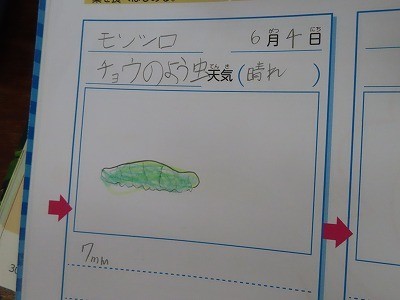 モンシロ 6月4日
チョウのよう虫 天気(晴れ)
7mm
30